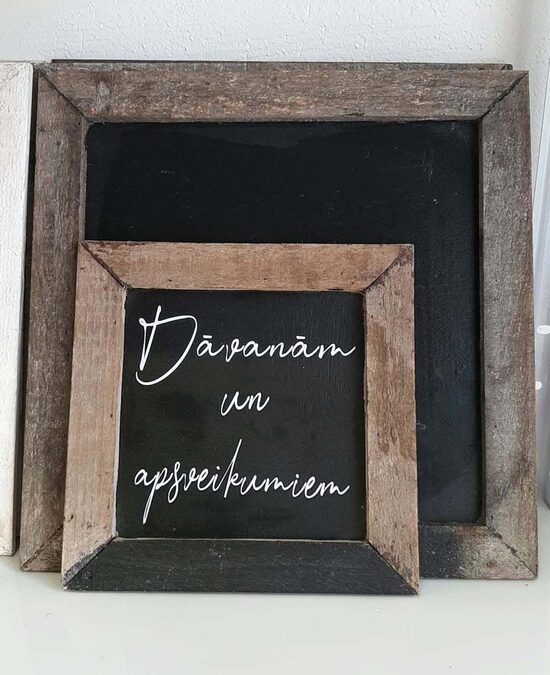 Dāvanām
un
apsveikumiem